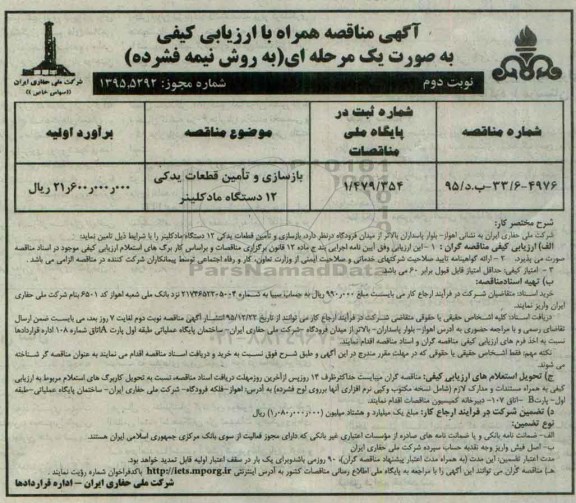 آگهی مناقصه همراه با ارزیابی کیفی
به صورت یک مرحله ای(به روش نیمه فشرده)
شرکت ملی حفاری ایران
((سهامی خاص))
نوبت دوم
شماره مجوز: ۱۳۹۵،۵۲۹۲
شماره مناقصه
شماره ثبت در پایگاه ملی مناقصات
موضوع مناقصه
برآورد اولیه
۴۹۷۶-۳۳/۶-ب.د/۹۵
۱/۴۷۹/۳۵۴
بازسازی و تأمین قطعات یدکی ۱۲ دستگاه مادکلینر
۲۱٫۶۰۰٫۰۰۰٫۰۰۰ ریال
شرح مختصر کار:
شرکت ملی حفاری ایران به نشانی اهواز- بلوار پاسداران بالاتر از میدان فرودگاه درنظر دارد، بازسازی و تأمین قطعات یدکی ۱۲ دستگاه مادکلینر را با شرایط ذیل تامین نماید:
الف) ارزیابی کیفی مناقصه گران : ۱- این ارزیابی وفق آیین نامه اجرایی بند ج ماده ۱۲ قانون برگزاری مناقصات و براساس کاربرگ های استعلام ارزیابی کیفی موجود در اسناد مناقصه
صورت می پذیرد. ۲- ارائه گواهینامه تایید صلاحیت شرکتهای خدماتی و صلاحیت ایمنی از وزارت تعاون، کار و رفاه اجتماعی توسط پیمانکاران شرکت کننده در مناقصه الزامی می باشد .
۳- امتیاز کیفی: حداقل امتیاز قابل قبول برابر ۶۰ می باشد.
ب) تهیه اسنادمناقصه:
خرید اسناد: متقاضیان شرکت در فرآیند ارجاع کار می بایست مبلغ ۹۹۰٫۰۰۰ ریال به حساب سیبا به شماره ۲۱۷۴۶۵۲۲۰۵۰۰۴ نزد بانک ملی شعبه اهواز کد ۶۵۰۱ بنام شرکت ملی حفاری
ایران واریز نمایند.
دریافت اسناد: کلیه اشخاص حقیقی یا حقوقی متقاضی شرکت در فرآیند ارجاع کار می توانند از تاریخ ۹۵/۱۲/۲۲ انتشار آگهی مناقصه نوبت دوم لغایت ۷ روز بعد، می بایست ضمن ارسال
تقاضای رسمی و با مراجعه حضوری به آدرس اهواز- بلوار پاسداران- بالاتر از میدان فرودگاه -شرکت ملی حفاری ایران- ساختمان پایگاه عملیاتی طبقه اول پارت Aاتاق شماره ۱۰۸ اداره قراردادها
نسبت به اخذ فرم های ارزیابی کیفی مناقصه گران و اسناد مناقصه اقدام نمایند.
نکته مهم: فقط اشخاص حقیقی یا حقوقی که در مهلت مقرر مندرج در این آگهی و طبق شرح فوق نسبت به خرید و دریافت اسناد مناقصه اقدام می نمایند به عنوان مناقصه گر شناخته
می شوند.
ج) تحویل استعلام های ارزیابی کیفی: مناقصه گران میبایست حداکثر ظرف ۱۴ روز پس از آخرین روز مهلت دریافت اسناد مناقصه، نسبت به تحویل کاربرگ های استعلام مربوط به ارزیابی
کیفی به همراه مستندات و مدارک لازم (شامل نسخه مکتوب وکپی نرم افزاری آنها برروی لوح فشرده) به آدرس: اهواز-فلکه فرودگاه- شرکت ملی حفاری ایران- ساختمان پایگاه عملیاتی-طبقه
اول- پارت B -اتاق ۱۰۷- دبیرخانه کمیسیون مناقصات اقدام نمایند.
د) تضمین شرکت در فرآیند ارجاع کار: مبلغ یک میلیارد و هشتاد میلیون (۱٫۰۸۰٫۰۰۰٫۰۰۰) ریال
نوع تضمین:
الف- ضمانت نامه بانکی و یا ضمانت نامه های صادره از مؤسسات اعتباری غیر بانکی که دارای مجوز فعالیت از سوی بانک مرکزی جمهوری اسلامی ایران هستند.
ب- اصل فیش واریز وجه نقدبه حساب سپرده شرکت ملی حفاری ایران
مدت اعتبار تضمین: این مدت (به همراه مدت اعتبار پیشنهاد مناقصه گران)، ۹۰ روزمی باشدوبرای یک بار در سقف اعتبار اولیه قابل تمدید خواهد بود.
هـ) مناقصه گران می توانند این آگهی را با مراجعه به پایگاه ملی اطلاع رسانی مناقصات کشور به آدرس اینترنتی http://iets.mporg.ir باکدفراخوان شماره رؤیت نمایند .
شرکت ملی حفاری ایران - اداره قراردادها
ParsNamadData